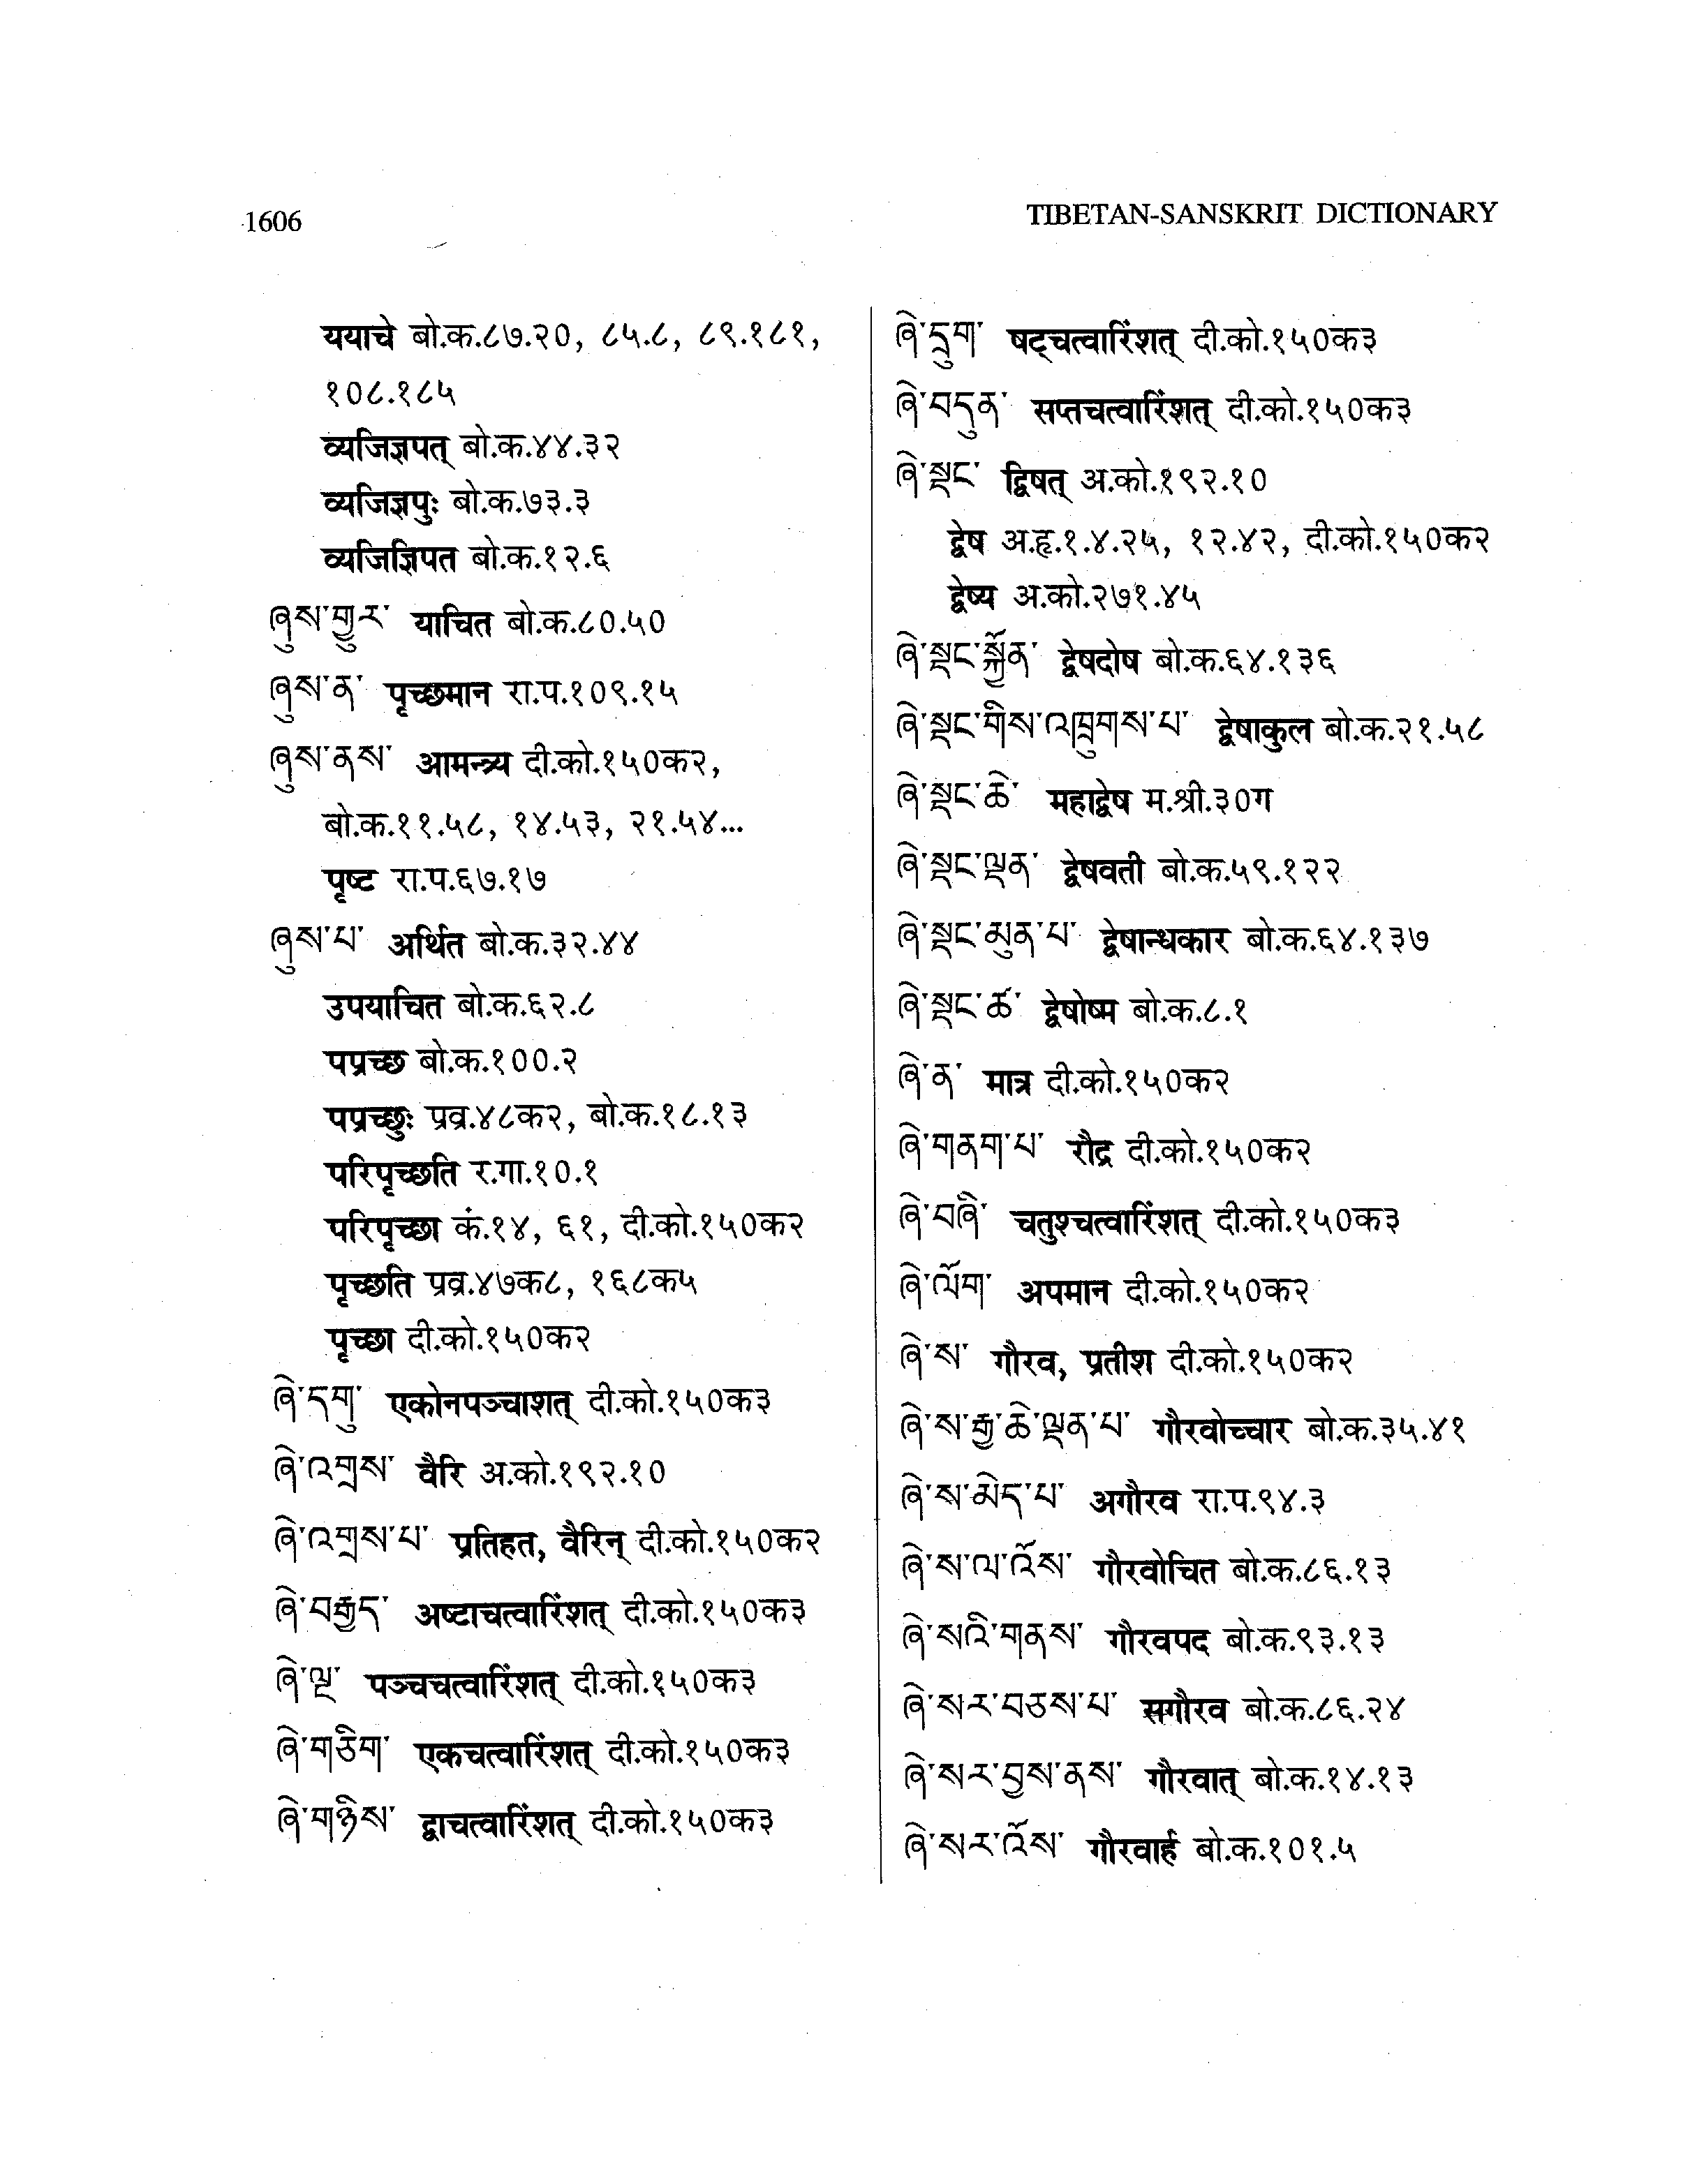 1606
TIBETAN-SANSKRIT DICTIONARY
ययाचे बो.क.८७.२०, ८५.८, ८९.१८१,
१०८.१८५
व्यजिज्ञपत् बो.क.४४.३२
व्यजिज्ञपुः बो.क.७३.३
व्यजिज्ञिपत बो.क.१२.६
ཞུས་གྱུར་ याचित बो.क.८०.५०
ཞུས་ན་ पृच्छमान रा.प.१०९.१५
ཞུས་ནས་ आमन्त्र्य दी.को.१५०क२,
बो.क.११.५८, १४.५३, २१.५४...
पृष्ट रा.प.६७.१७
ཞུས་པ་ अर्थित बो.क.३२.४४
उपयाचित बो.क.६२.८
पप्रच्छ बो.क.१००.२
पप्रच्छुः प्रव्र.४८क२, बो.क.१८.१३
परिपृच्छति र.गा.१०.१
परिपृच्छा कं.१४, ६१, दी.को.१५०क२
पृच्छति प्रव्र.४७क८, १६८क५
पृच्छा दी.को.१५०क२
ཞེ་དགུ་ एकोनपञ्चाशत् दी.को.१५०क३
ཞེ་འགྲས་ वैरि अ.को.१९२.१०
ཞེ་འགྲས་པ་ प्रतिहत, वैरिन् दी.को.१५०क२
ཞེ་བརྒྱད་ अष्टाचत्वारिंशत् दी.को.१५०क३
ཞེ་ལྔ་ पञ्चचत्वारिंशत् दी.को.१५०क३
ཞེ་གཅིག་ एकचत्वारिंशत् दी.को.१५०क३
ཞེ་གཉིས་ द्वाचत्वारिंशत् दी.को.१५०क३
ཞེ་དྲུག་ षट्चत्वारिंशत् दी.को.१५०क३
ཞེ་བདུན་ सप्तचत्वारिंशत् दी.को.१५०क३
ཞེ་སྡང་ द्विषत् अ.को.१९२.१०
द्वेष अ.हृ.१.४.२५, १२.४२, दी.को.१५०क२
द्वेष्य अ.को.२७१.४५
ཞེ་སྡང་སྐྱོན་ द्वेषदोष बो.क.६४.१३६
ཞེ་སྡང་གིས་འཁྲུགས་པ་ द्वेषाकुल बो.क.२१.५८
ཞེ་སྡང་ཆེ་ महाद्वेष म.श्री.३०ग
ཞེ་སྡང་ལྡན་ द्वेषवती बो.क.५९.१२२
ཞེ་སྡང་མུན་པ་ द्वेषान्धकार बो.क.६४.१३७
ཞེ་སྡང་ཚ་ द्वेषोष्म बो.क.८.१
ཞེ་ན་ मात्र दी.को.१५०क२
ཞེ་གནག་པ་ रौद्र दी.को.१५०क२
ཞེ་བཞི་ चतुश्चत्वारिंशत् दी.को.१५०क३
ཞེ་ལོག་ अपमान दी.को.१५०क२
ཞེ་ས་ गौरव, प्रतीश दी.को.१५०क२
ཞེ་ས་རྒྱ་ཆེ་ལྡན་པ་ गौरवोच्चार बो.क.३५.४१
ཞེ་ས་མེད་པ་ अगौरव रा.प.९४.३
ཞེ་ས་ལ་འོས་ गौरवोचित बो.क.८६.१३
ཞེ་སའི་གནས་ गौरवपद बो.क.९३.१३
ཞེ་སར་བཅས་པ་ सगौरव बो.क.८६.२४
ཞེ་སར་བྱས་ནས་ गौरवात् बो.क.१४.१३
ཞེ་སར་འོས་ गौरवार्ह बो.क.१०१.५